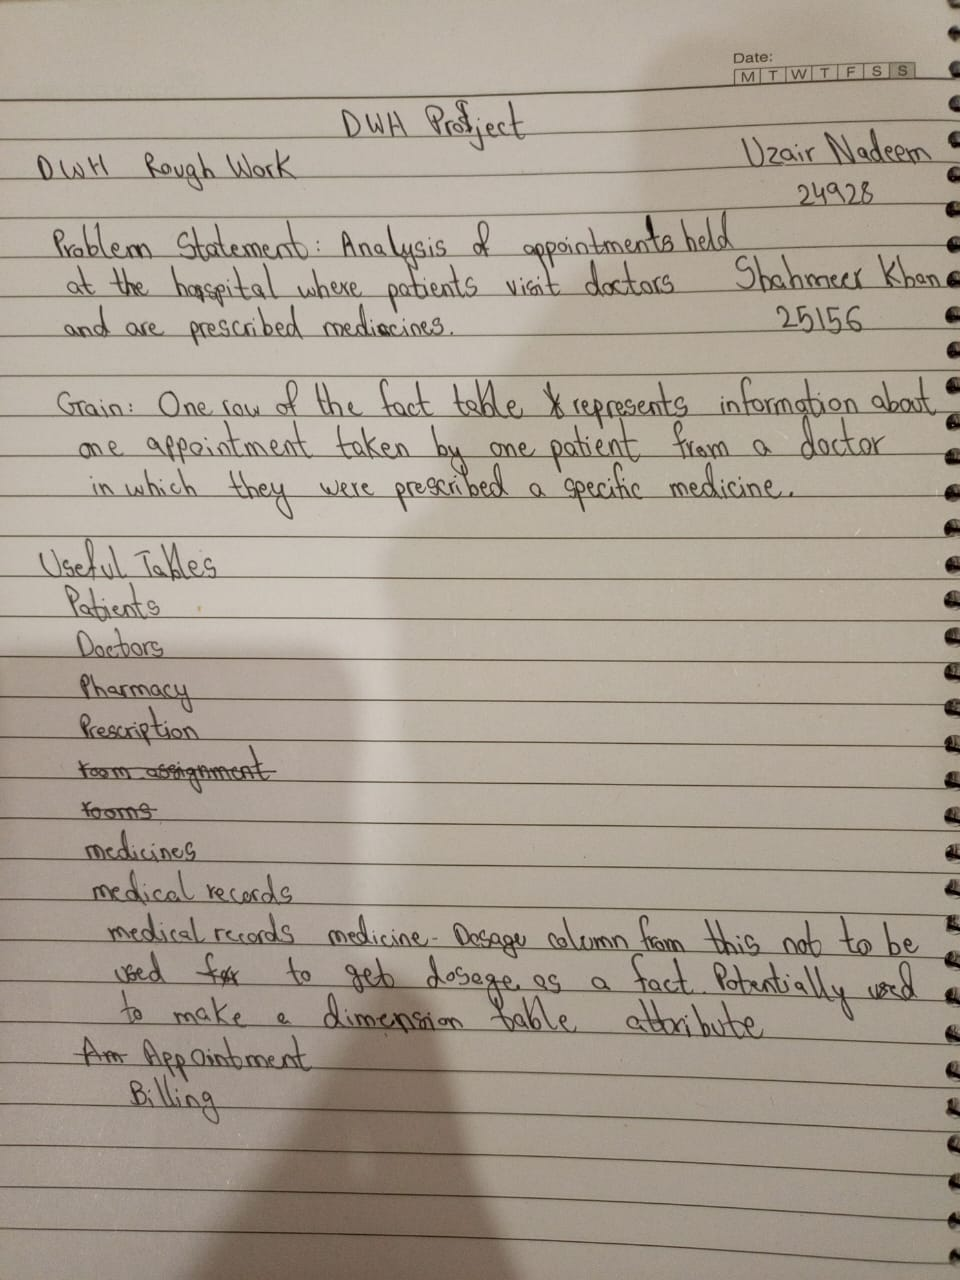 Date:
M T W T F S S
DWH Project
DWH Rough Work
Uzair Nadeem
24928
Problem Statement: Analysis of appointments held
at the hospital where patients visit doctors
Shahmeer Khan
and are prescribed medicines.
25156
Grain: One row of the fact table represents information about
one appointment taken by one patient from a doctor
in which they were prescribed a specific medicine.
Useful Tables
Patients
Doctors
Pharmacy
Prescription
room assignment
rooms
medicines
medical records
medical records medicine - Dosage column from this not to be
used for to get dosage as a fact. Potentially used
to make a dimension table attribute
Am Appointment
Billing